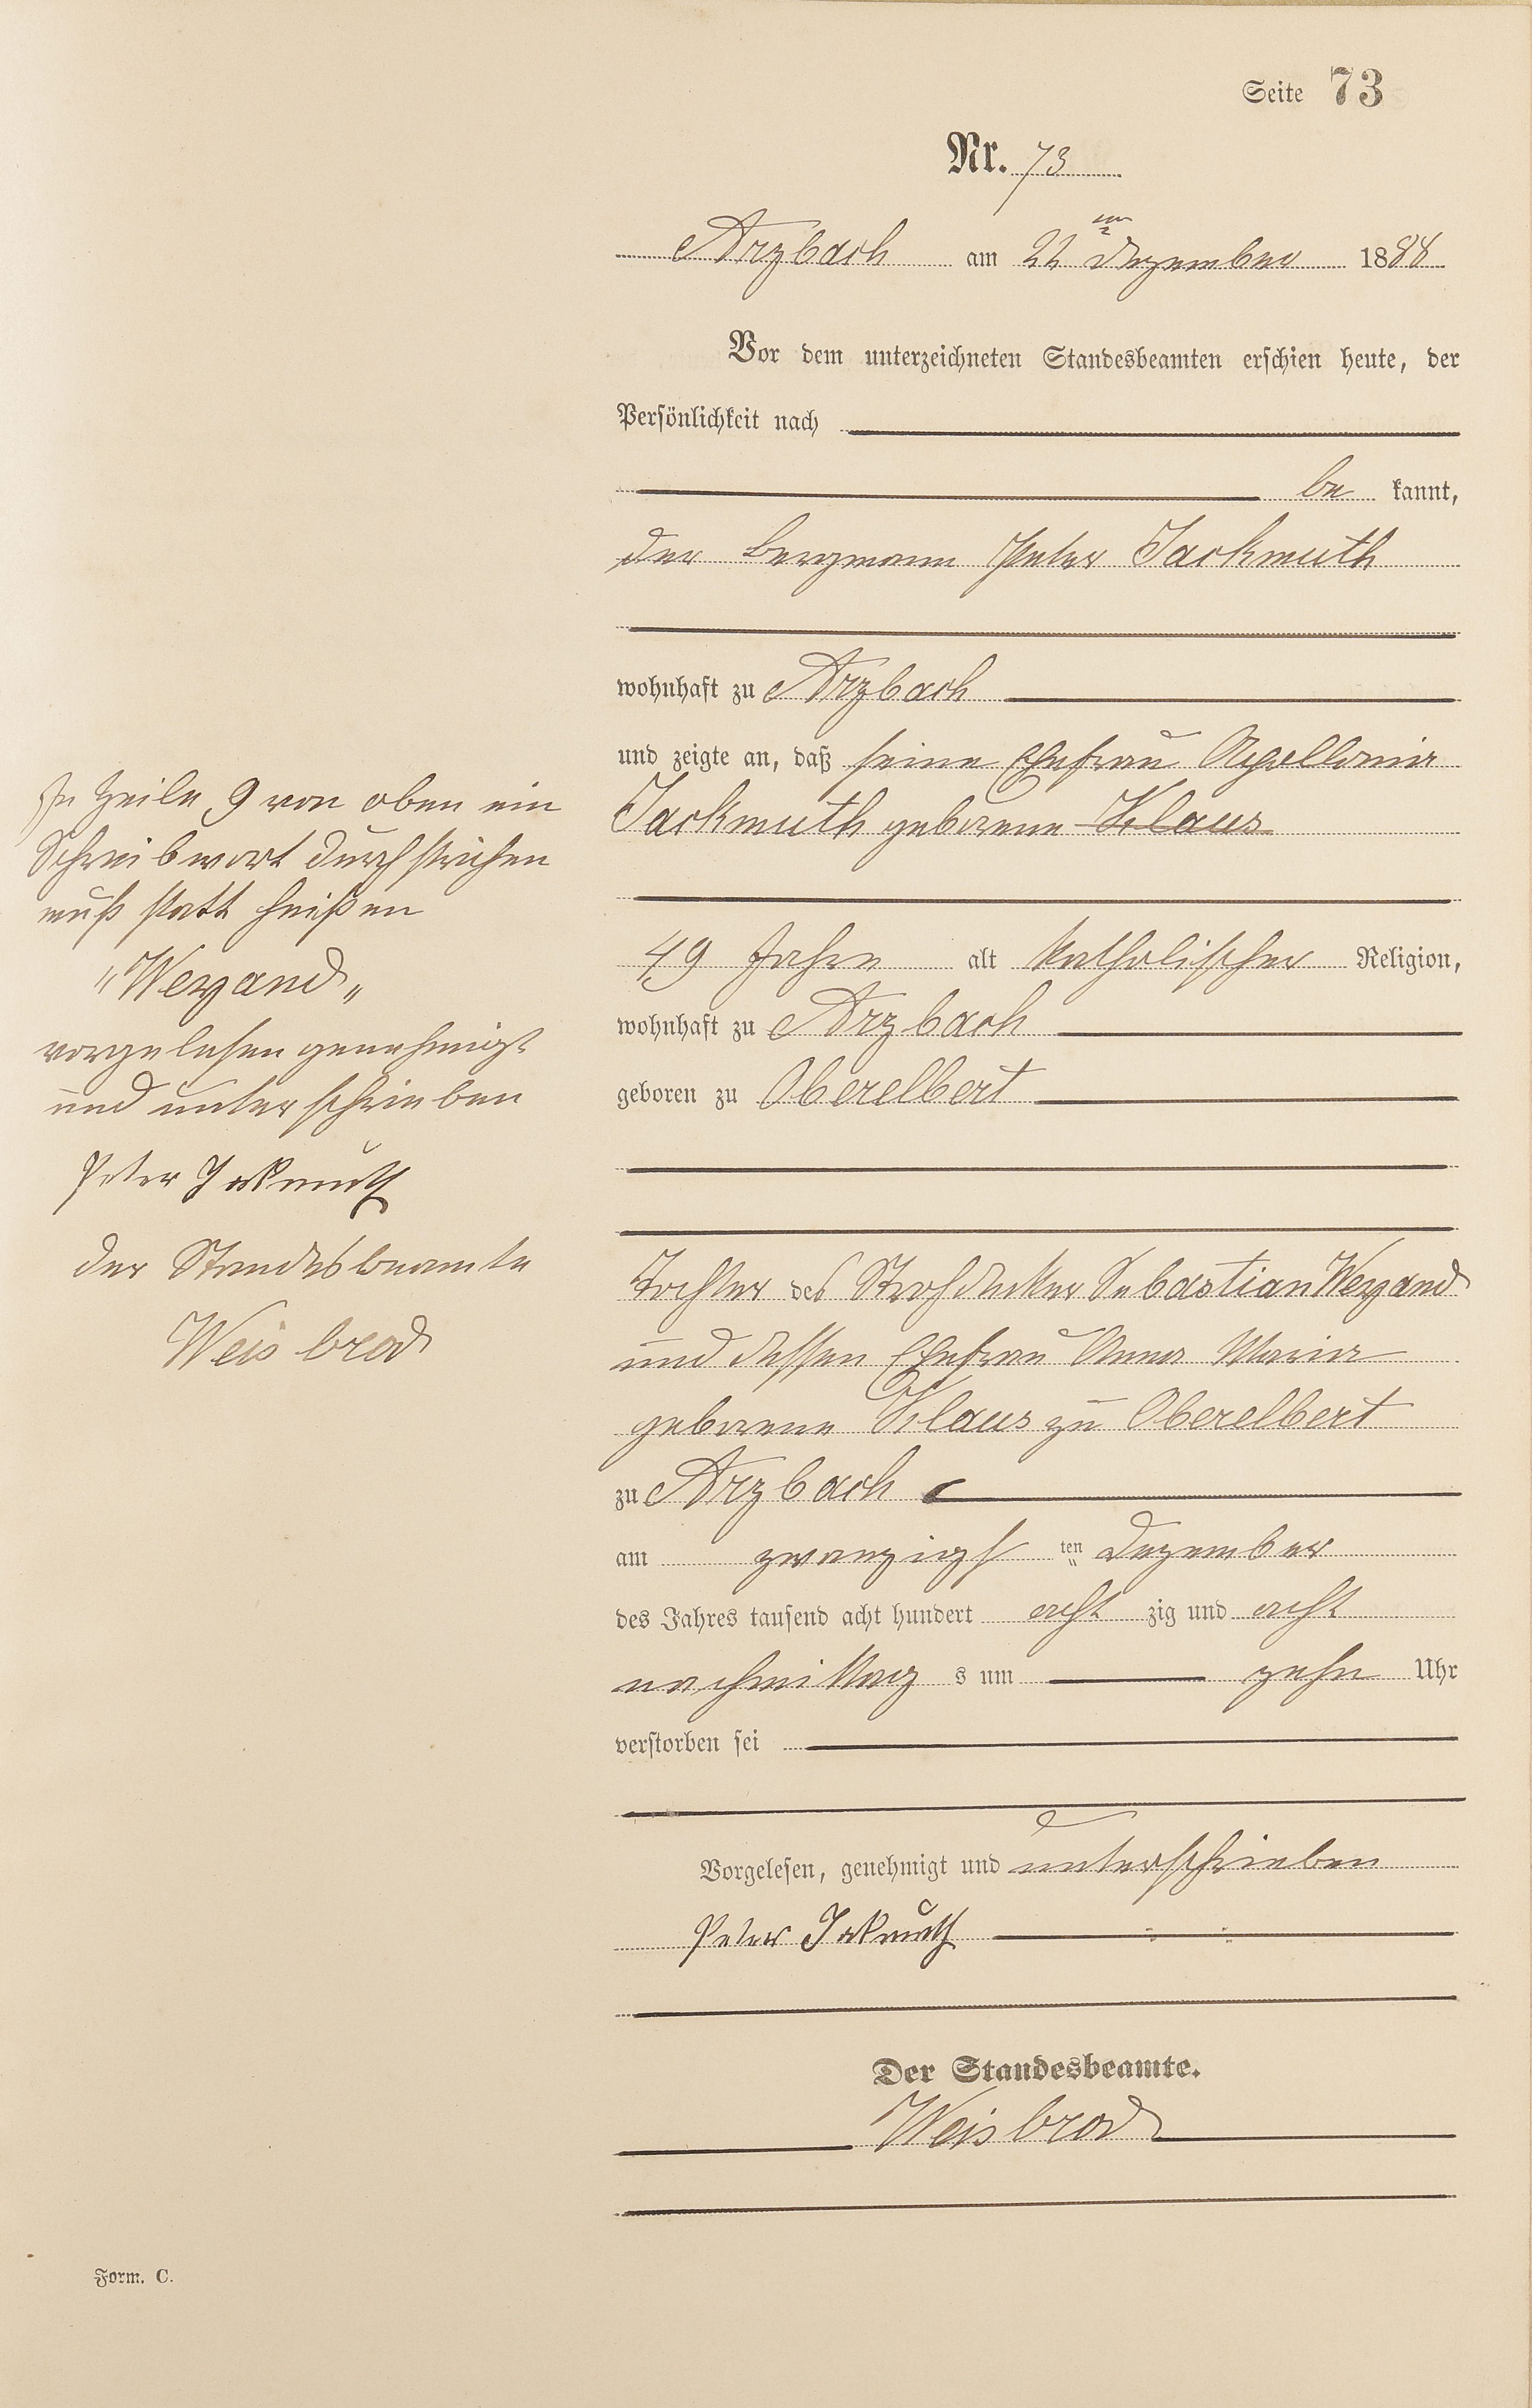 Seite 73
Nr. 73
Arzbach am 22 ten Dezember 1888
Vor dem unterzeichneten Standesbeamten erschien heute, der
Persönlichkeit nach
be kannt,
der Bergmann Peter Jackmuth
wohnhaft zu Arzbach
und zeigte an, daß seine Ehefrau Apollonia
Jackmuth geborene Klaus
49 Jahre alt katholischer Religion,
wohnhaft zu Arzbach
geboren zu Oberelbert
Tochter des Strohdecker Sebastian Weyand
und dessen Ehefrau Anna Maria
geborene Klaus zu Oberelbert
zu Arzbach
am zwanzigs ten Dezember
des Jahres tausend acht hundert acht zig und acht
nachmittag s um zehn Uhr
verstorben sei
Vorgelesen, genehmigt und unterschrieben
Peter Jakmuth
Der Standesbeamte.
Weisbrod
In Zeile 9 von oben ein
Schreibwort durchstrichen
muß statt heißen
"Weyand"
vorgelesen genehmigt
und unterschrieben
Peter Jakmuth
der Standesbeamte
Weisbrod
Form. C.